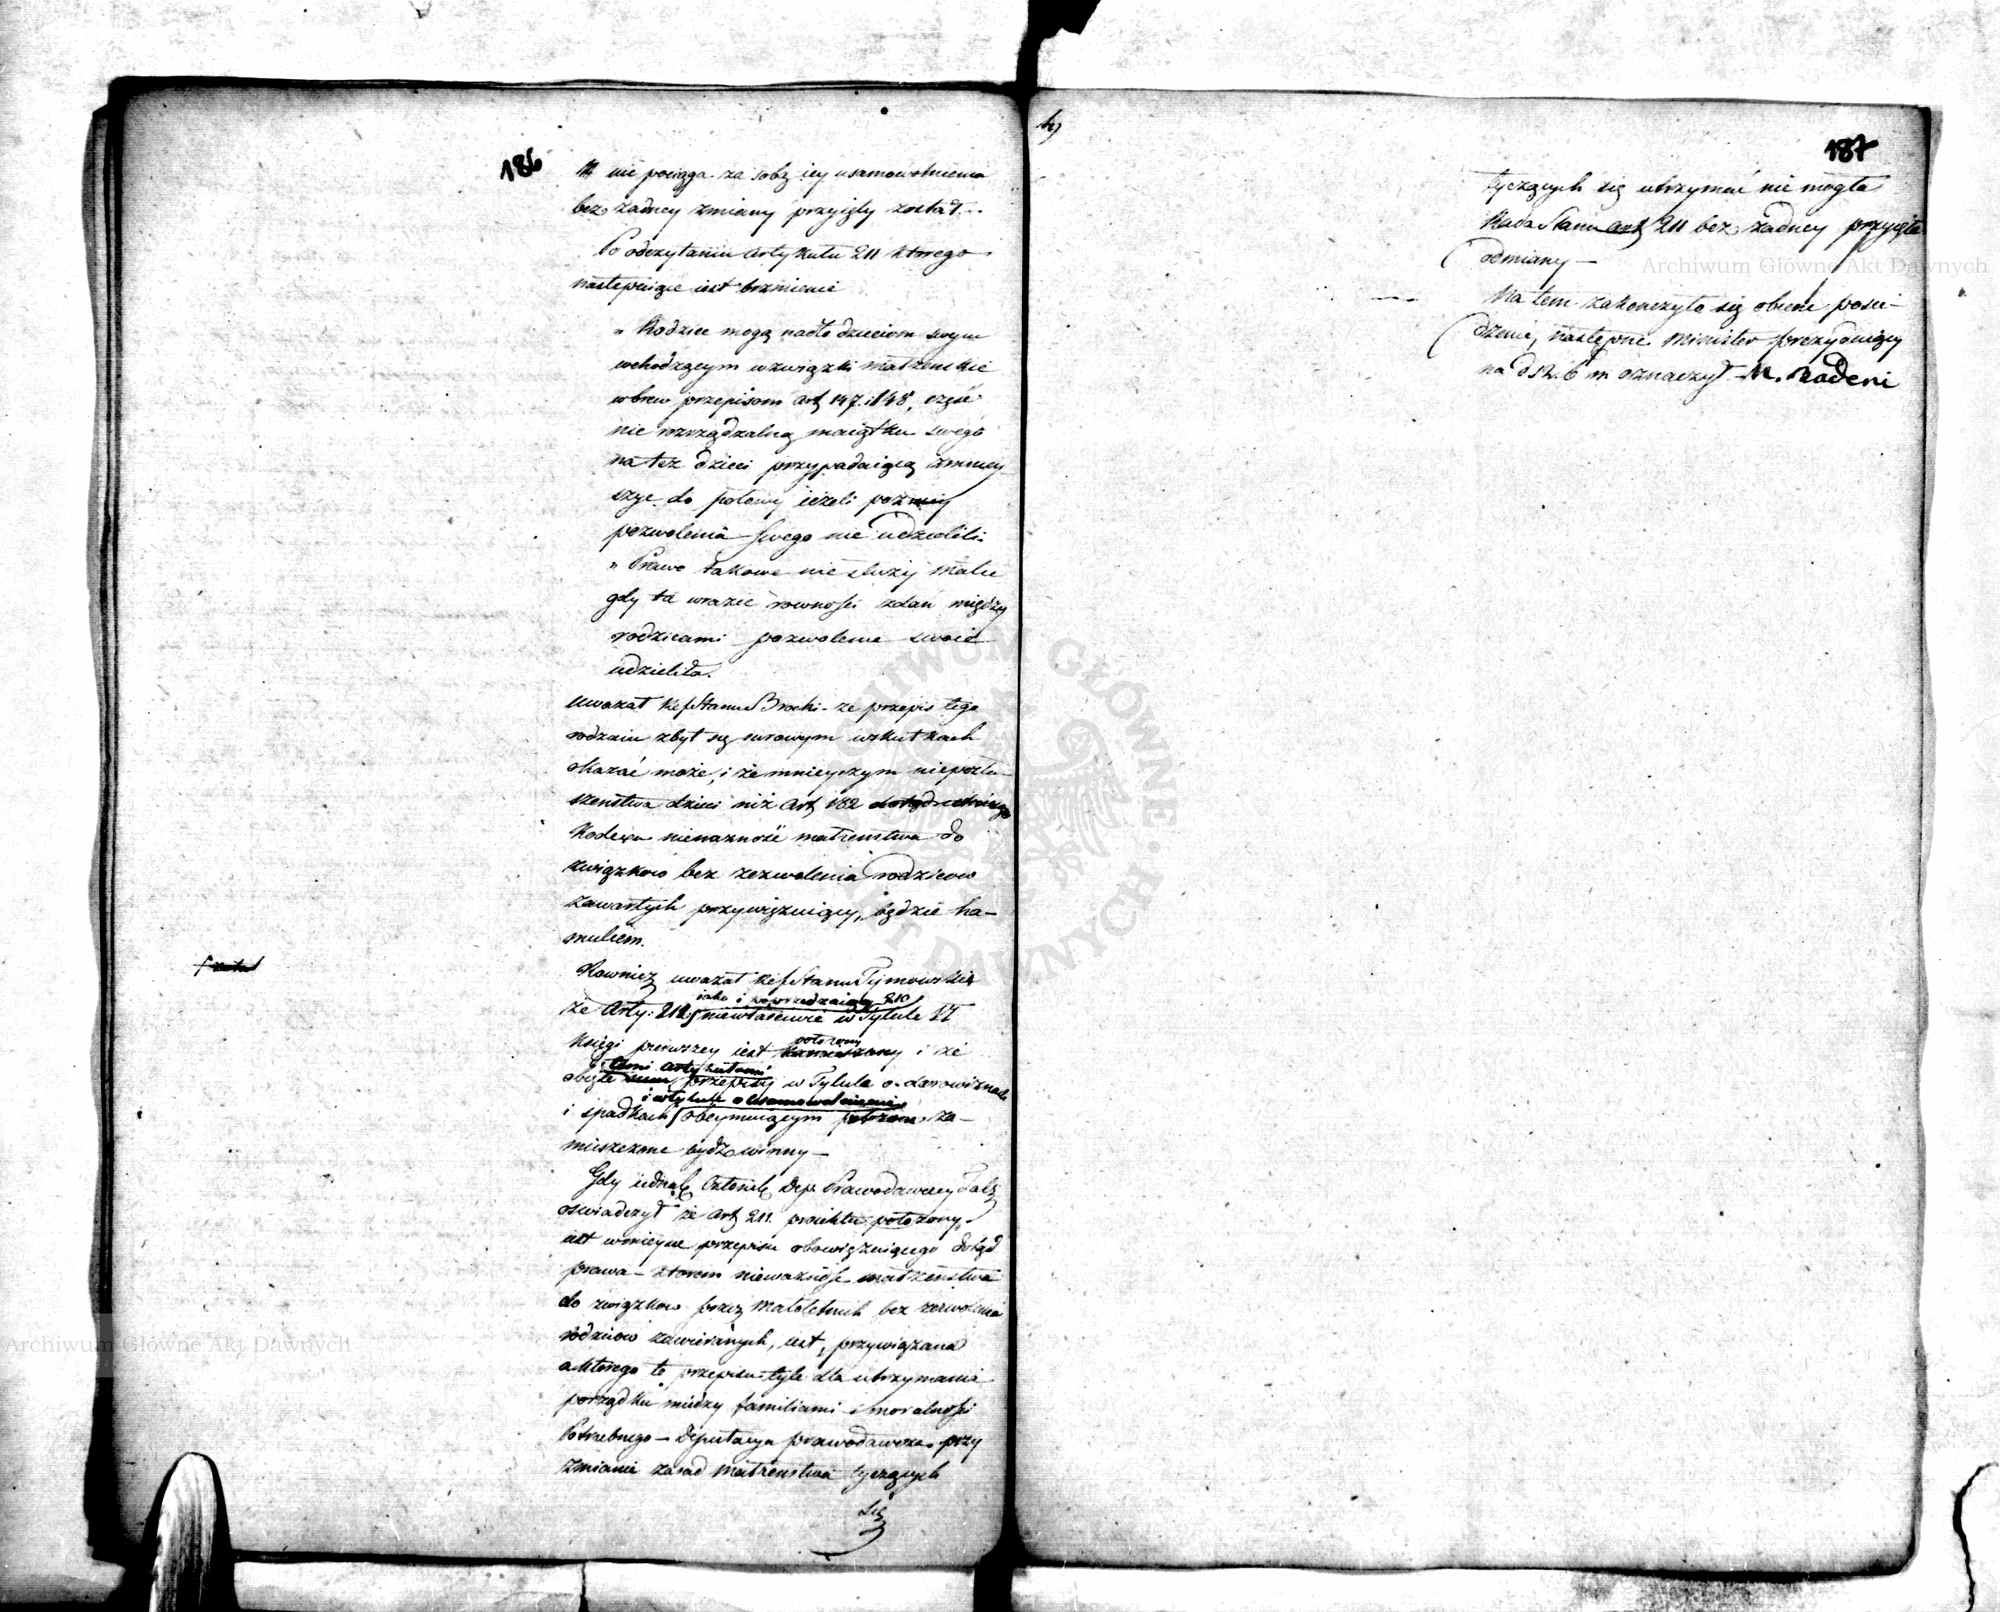 186
nie pociąga za sobą iey usamowolnienia
bez żadney zmiany przyięty został.
Po odczytaniu artykułu 211 ktorego
następuiące iest brzmienie
„ Rodzice mogą nadto dzieciom swym
wchodzącym w związki małżenskie
wbrew przepisom art 147. i 148, część
nie rozrządzalną maiątku swego
na też dzieci przypadaiącą zmniey-
szyc do połowy ieżeli
pozwolenia swego nie udzielili.
„ Prawo takowe nie służy Matce
gdy ta w razie rownosci zdań między
rodzicami pozwolenie swoie
udzieliła.
uwazał Ref Stanu Brocki - że przepis tego
rodzaiu zbyt się surowym w skutkach
okazać może, i że mnieyszym nieposłu-
szenstwa dzieci niż art 182
Kodexu nieważność małzenstwa do
związkow bez zezwolenia rodzicow
zawartych przywięzuiący, będzie ha-
mulcem.
Rownież uwazał Ref Stanu Tymowski
iako i poprzedzaiący 210
że Arty: 212 niewłaściwie w Tytule VI
położony
Księgi pierwszey iest zamieszczony i że
temi artykułami
obięte przepisy w Tytule o darowiznach
i artykule o Usamowolnieniu
i spadkach obeymuiącym położone za-
mieszczone bydź winny —
Gdy iednak Członek Dep. Prawodawczey
oswiadczył że art 211. proiektu położony
iest w mieysce przepisu obowiązuiącego dotąd
prawa - ktorem nieważność małżenstwa
do związkow przez Małoletnich bez zezwolenia
rodzicow zawieranych, iest, przywiązana
a ktorego to przepisu tyle dla utrzymania
porządku miedzy familiami i moralności
Potrzebnego — Deputacya prawodawcza przy
zmianie zasad Małżenstwa tyczących
się
187
tyczących się utrzymać nie mogła
Rada Stanu art 211 bez żadney przyięła
odmiany —
Na tem zakonczyło się obecne posie-
dzenie, następne Minister prezyduiący
na d 12. b m oznaczył M. Badeni
Archiwum Główne Akt Dawnych
Archiwum Główne Akt Dawnych